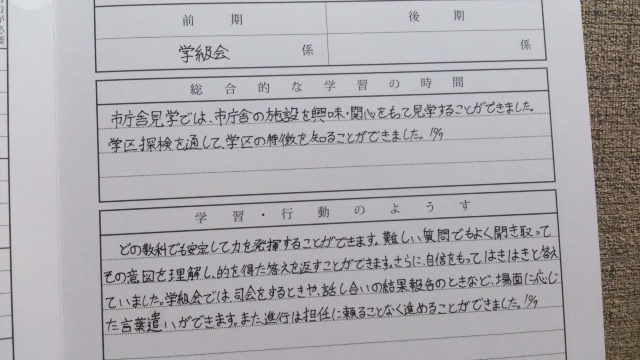 前期 後期
学級会 係 係
総合的な学習の時間
市庁舎見学では、市庁舎の施設を興味・関心をもって見学することができました。
学区探検を通して、学区の特徴を知ることができました。
学習・行動のようす
どの教科でも安定して力を発揮することができます。難しい質問でもよく聞き取って
その意図を理解し、的を得た答えを返すことができます。さらに、自信をもってはきはきと答え
ていました。学級会では、司会をするときや、話し合いの結果報告のときなど、場面に応じ
た言葉遣いができます。また、進行は担任に頼ることなく進めることができました。